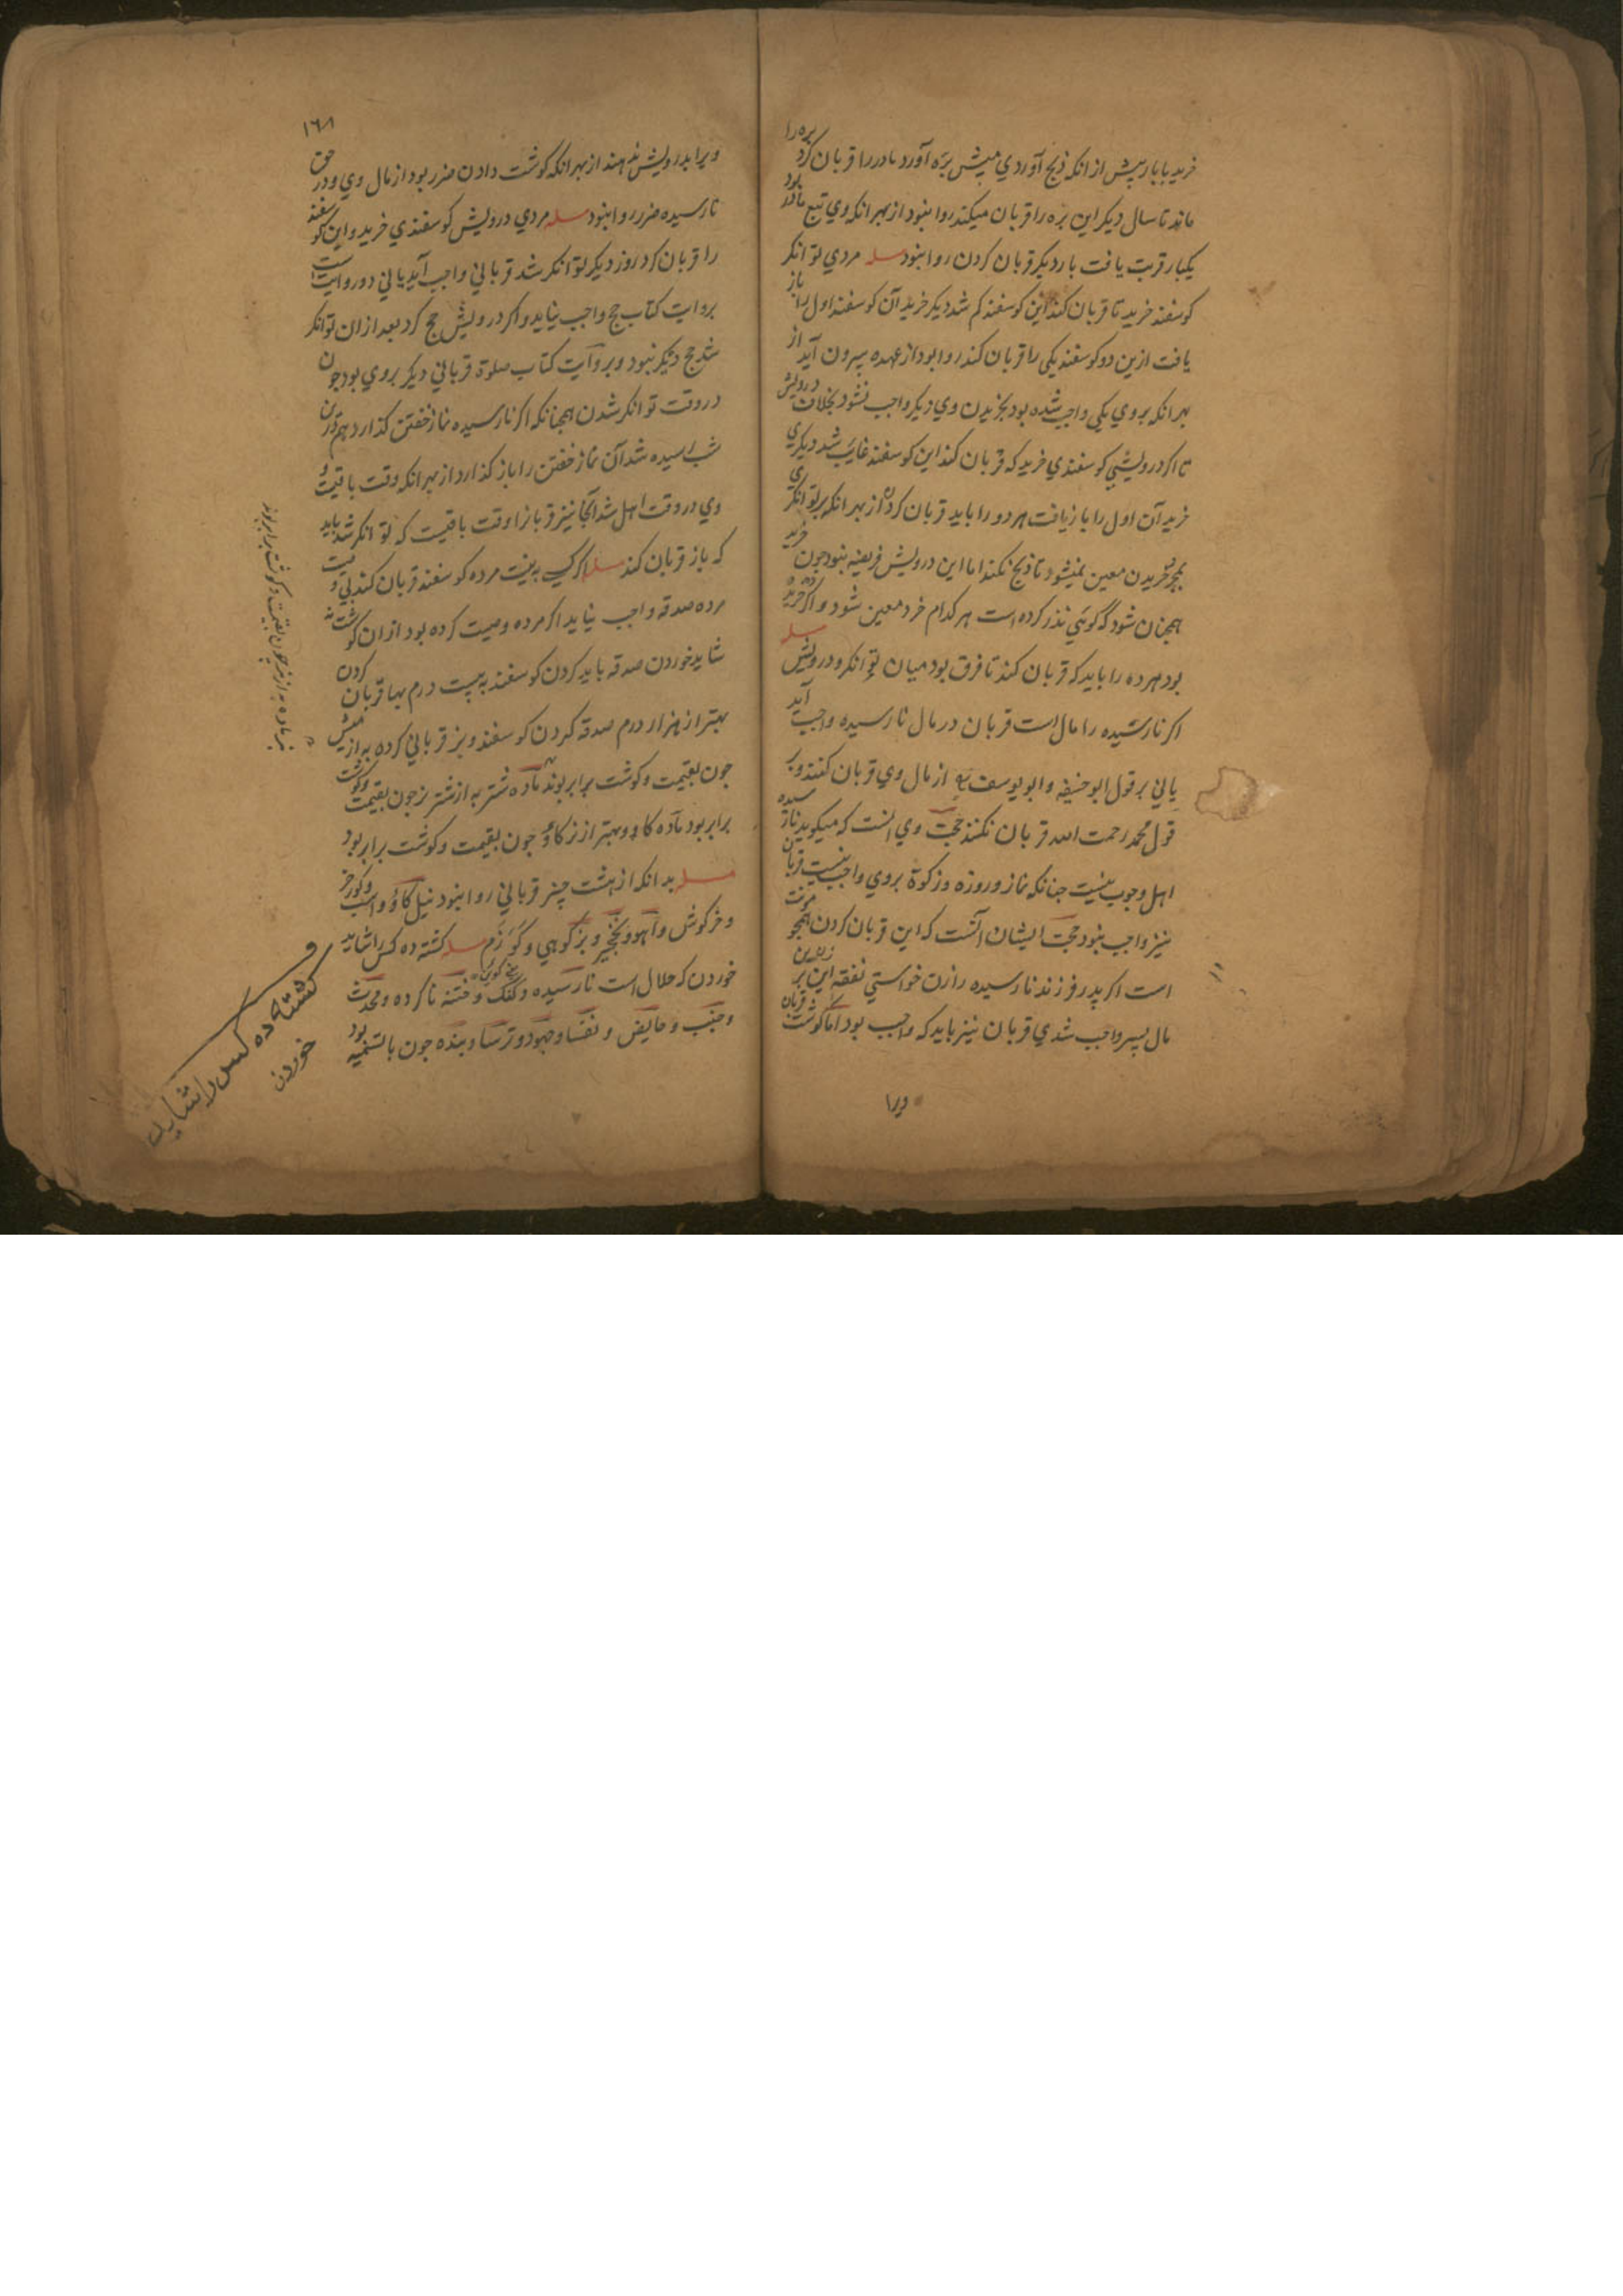 خرید بابار پیش از انکه ذبح آوردي میش بره آورد مادر را قربان کرد بره را
ماند تا سال دیکر این بره را قربان میکند روا نبود از بهر انکه وي تبع مادر بود
یکبار قربت یافت بار دیکر قربان کردن روا نبود مسله مردي توانکر
کوسفند خرید تا قربان کند این کوسفند کم شد دیکر خرید آن کوسفند اول را باز
یافت ازین دو کوسفند یکی را قربان کند روا بود از عهده بیرون آید از
بهر انکه بروي یکی واجب شده بود بخریدن وي دیکر واجب نشود بخلاف درویش
تا اکر درویشي کوسفندي خرید که قربان کند این کوسفند غایب شد دیکري
خرید آن اول را باز یافت هر دو را باید قربان کرد از بهر انکه بر توانکري
بمجرد خریدن معین نمیشود تا ذبح نکند اما این درویش فریضه نبود چون خرید
همچنان شود که کوئي نذر کرده است هر کدام خرد معین شود و اکر ده خریده
بود هر ده را باید که قربان کند تا فرق بود میان توانکر و درویش مسله
اکر نارسیده را مال است قربان در مال نارسیده واجب آید
یاني بر قول ابو حنیفه و ابو یوسف رح از مال وي قربان کنند و بر
قول محمد رحمت الله قربان نکنند حجت وي انست که میکوید نارسیده
اهل وجوب نیست چنانکه نماز و روزه و زکوة بروي واجب نیست قربان
نیز واجب نبود حجت ایشان انست که این قربان کردن همچو مؤنت
است اکر پدر فرزند نارسیده را زن خواستي نفقه این زن بر
مال پسر واجب شدي قربان نیز باید که واجب بود اما کوشت قربان
ویرا
١٦٨
ویرا بدرویش ندهند از بهر انکه کوشت دادن ضرر بود از مال وي و در حق
نارسیده ضرر روا نبود مسله مردي درویش کوسفندي خرید و این کوسفند
را قربان کرد روز دیکر توانکر شد قرباني واجب آید یاني دو روایت است
بروایت کتاب حج واجب نیاید و اکر درویش حج کرد بعد ازان توانکر
شد حج دیکر نبود و بروایت کتاب صلوة قرباني دیکر بروي بود چون
در وقت توانکر شدن همچنانکه اکر نارسیده نماز خفتن کذارد هم دران
شب رسیده شد آن نماز خفتن را باز کذارد از بهر انکه وقت باقیست و
وي در وقت اهل شد آنجا نیز قربانرا وقت باقیست که توانکر شد باید
که باز قربان کند مسله اکر کسي به نیت مرده کوسفند قربان کند بي وصیت
مرده صدقه واجب نیاید اکر مرده وصیت کرده بود ازان کوشت نه
شاید خوردن صدقه باید کردن کوسفند به بیست درم بها قربان کردن
بهتر از هزار درم صدقه کردن کوسفند و بز قرباني کرده به از میش
چون بقیمت و کوشت برابر بوند ماده شتر به از شتر نر چون بقیمت و کوشت
برابر بود ماده کاو بهتر از نر کاو چون بقیمت و کوشت برابر بود
مسله بدانکه از هشت چیز قرباني روا نبود نیل کاو و اسب و کور خر
و خرکوش و آهو و نخچیر و بز کوهي و کوزم مسله کشته ده کس را شاید
خوردن که حلال است نارسیده و کنک و ختنه ناکرده و محدث
و جنب و حایض و نفسا و جهود و ترسا و بنده چون با تسمیه بود
بز ماده به از نر چون بقیمت و کوشت برابر بود
کشته ده کس را شاید
خوردن